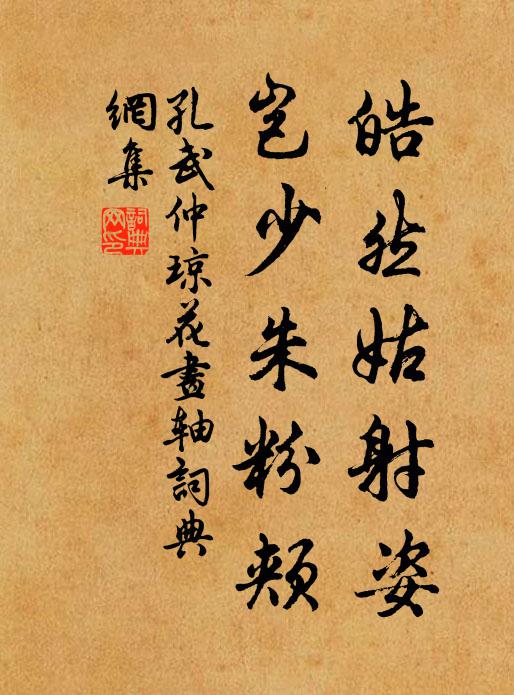 皓然姑射姿
岂少朱粉颊
孔武仲琼花畫轴詞典
網集
詞典
网印